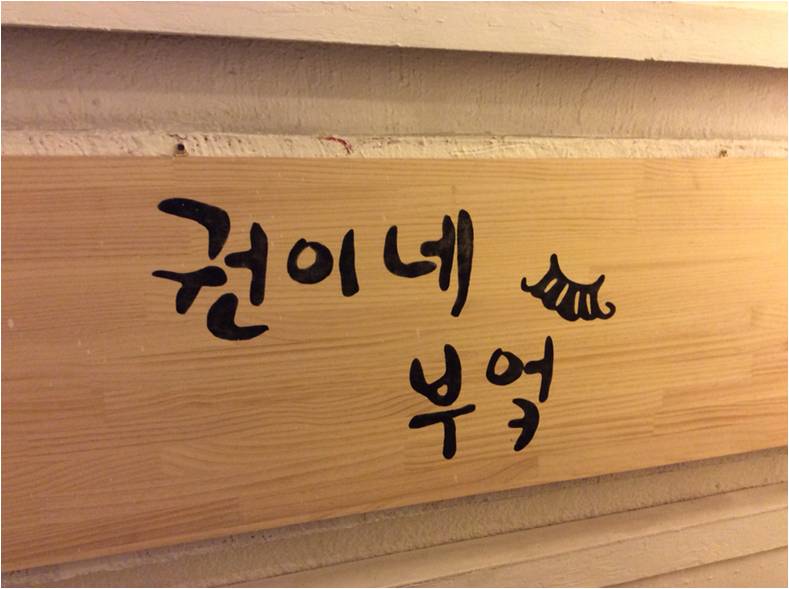 권이네
부엌